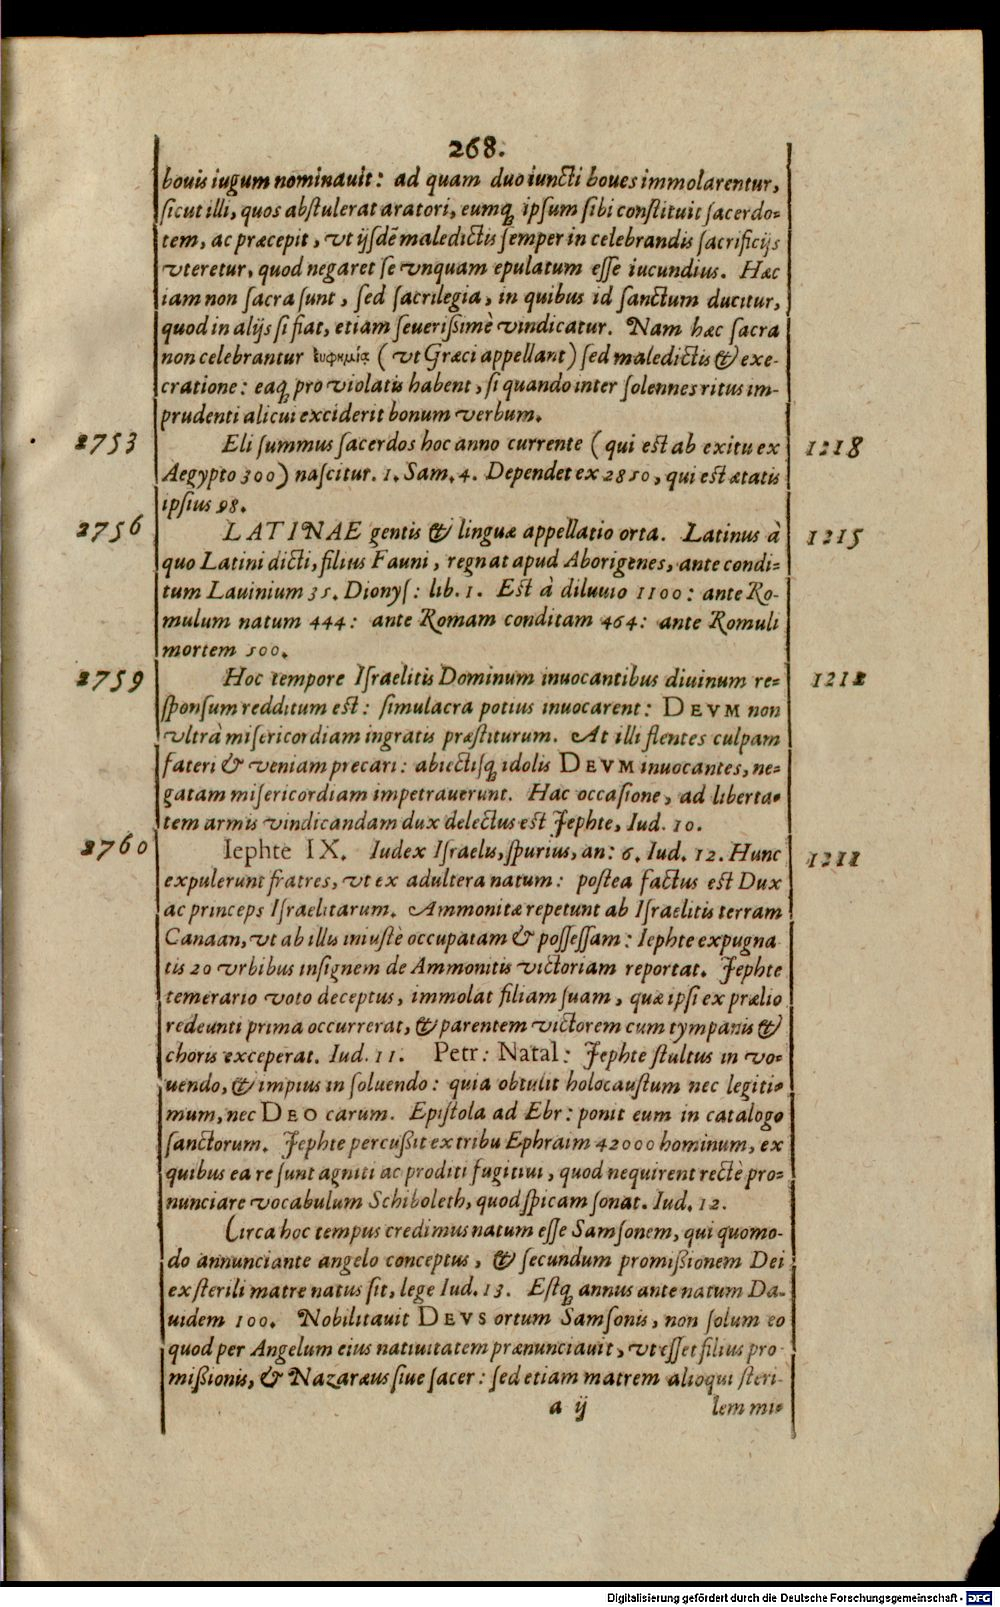 268.
bouis iugum nominauit: ad quam duo iuncti boues immolarentur,
sicut illi, quos abstulerat aratori, eumq; ipsum sibi constituit sacerdo-
tem, ac præcepit, vt ijsdē maledictis semper in celebrandis sacrificijs
vteretur, quod negaret se vnquam epulatum esse iucundius. Hæc
iam non sacra sunt, sed sacrilegia, in quibus id sanctum ducitur,
quod in alijs si fiat, etiam seuerißimè vindicatur. Nam hæc sacra
non celebrantur ἐυφημία (vt Græci appellant) sed maledictis & exe-
cratione: eaq; pro violatis habent, si quando inter solennes ritus im-
prudenti alicui exciderit bonum verbum.
2753 Eli summus sacerdos hoc anno currente (qui est ab exitu ex 1218
Aegypto 300) nascitur. 1. Sam. 4. Dependet ex 2850, qui est ætatis
ipsius 98.
2756 LATINAE gentis & linguæ appellatio orta. Latinus à 1215
quo Latini dicti, filius Fauni, regnat apud Aborigenes, ante condi-
tum Lauinium 35. Dionys: lib. 1. Est à diluuio 1100: ante Ro-
mulum natum 444: ante Romam conditam 464: ante Romuli
mortem 500.
2759 Hoc tempore Israelitis Dominum inuocantibus diuinum re- 1212
sponsum redditum est: simulacra potius inuocarent: DEVM non
vltrà misericordiam ingratis præstiturum. At illi flentes culpam
fateri & veniam precari: abiectisq; idolis DEVM inuocantes, ne-
gatam misericordiam impetrauerunt. Hac occasione, ad liberta-
tem armis vindicandam dux delectus est Jephte, Iud. 10.
2760 Iephte IX. Iudex Israelis, spurius, an: 6. Iud. 12. Hunc 1211
expulerunt fratres, vt ex adultera natum: postea factus est Dux
ac princeps Israelitarum. Ammonitæ repetunt ab Israelitis terram
Canaan, vt ab illis iniustè occupatam & possessam: Iephte expugna
tis 20 vrbibus insignem de Ammonitis victoriam reportat. Jephte
temerario voto deceptus, immolat filiam suam, quæ ipsi ex prælio
redeunti prima occurrerat, & parentem victorem cum tympanis &
choris exceperat. Iud. 11. Petr: Natal: Jephte stultus in vo-
uendo, & impius in soluendo: quia obtulit holocaustum nec legiti-
mum, nec DEO carum. Epistola ad Ebr: ponit eum in catalogo
sanctorum. Jephte percußit ex tribu Ephraim 42000 hominum, ex
quibus ea re sunt agniti ac proditi fugitiui, quod nequirent rectè pro-
nunciare vocabulum Schiboleth, quod spicam sonat. Iud. 12.
Circa hoc tempus credimus natum esse Samsonem, qui quomo-
do annunciante angelo conceptus, & secundum promißionem Dei
ex sterili matre natus sit, lege Iud. 13. Estq; annus ante natum Da-
uidem 100. Nobilitauit DEVS ortum Samsonis, non solum eo
quod per Angelum eius natiuitatem prænunciauit, vt esset filius pro
mißionis, & Nazaræus siue sacer: sed etiam matrem alioqui steri-
a ij lem mi-
Digitalisierung gefördert durch die Deutsche Forschungsgemeinschaft - DFG